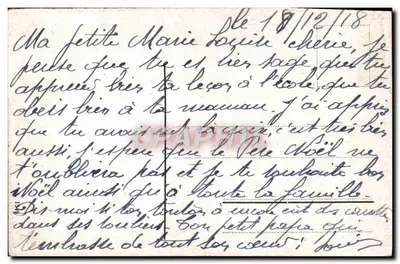 le 17/12/18
Ma petite Marie Louise chérie, je
pense que tu es bien sage que tu
apprend bien ta leçon à l'école, que tu
obeis bien à ta maman, j'ai appris
que tu avais la croix, c'est très bien
aussi, j'espère que le Père Noël ne
t'oubliera pas et je te souhaite bon
Noël ainsi qu'à toute la famille.
Dis moi si ton tonton a encore des
dans ses souliers. Ton petit papa qui
t'embrasse de tout son coeur! Louis